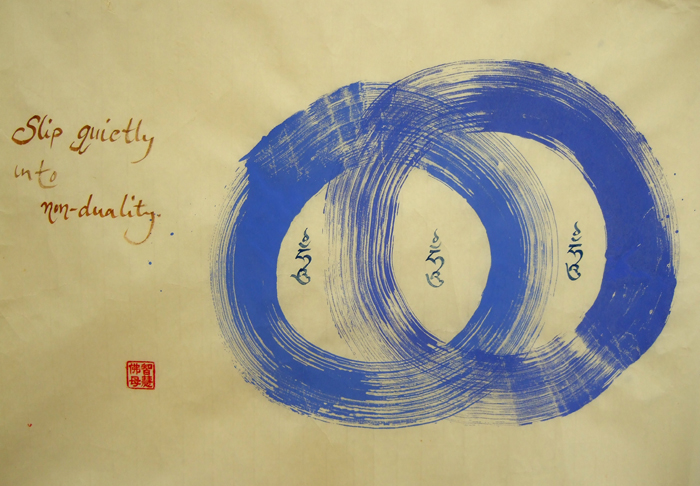 Slip quietly
into
non-duality.
智慧
佛母